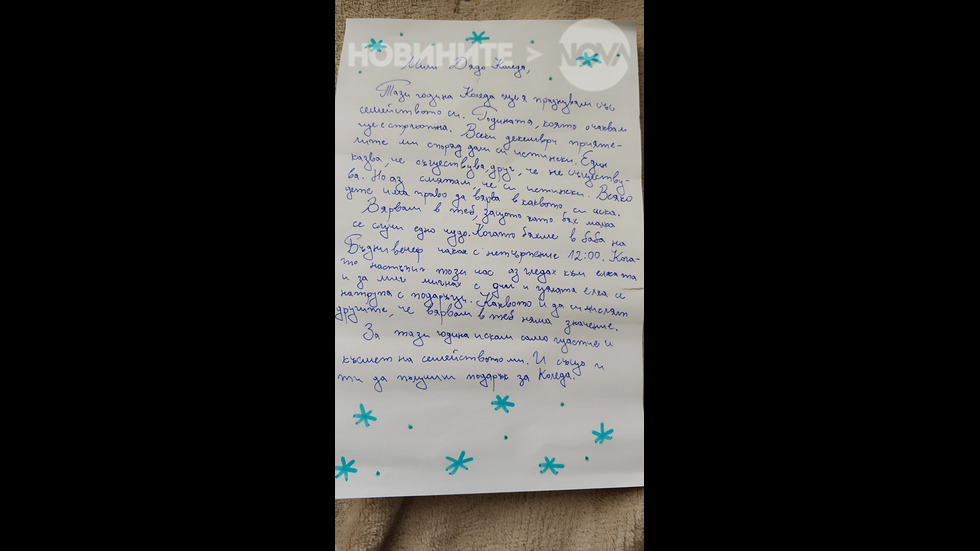 НОВИНИТЕ > NOVA
Мили Дядо Коледа,
Тази година Коледа ще я празнувам със
семейството си. Годината, която очаквам
ще е страхотна. Всеки декември прияте-
лите ми спорят дали си истински. Един
казва, че съществува, друг, че не съществу-
ва. Но аз смятам, че си истински. Всяко
дете има право да вярва в каквото си иска.
Вярвам в теб, защото като бях малка
се случи едно чудо. Когато бяхме в баба на
Бъдни вечер чаках с нетърпение 12:00. Кога-
то настъпи този час аз гледах към елхата
и за миг мигнах с очи и цялата елха се
натрупа с подаръци. Каквото и да си мислят
другите, че вярвам в теб няма значение.
За тази година искам само щастие и
късмет на семейството ми. И също и
ти да получиш подарък за Коледа.